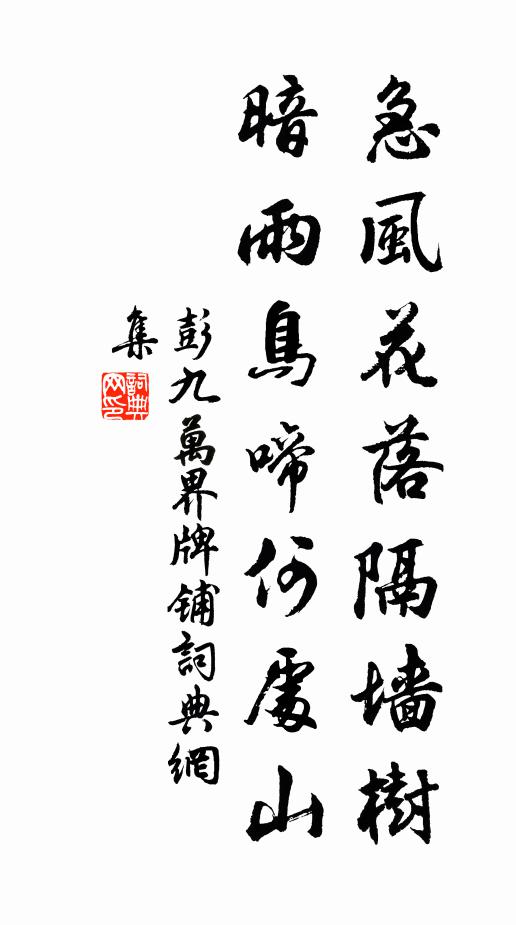 急風花落隔墙樹
暗雨鳥啼何處山
彭九萬界牌鋪詞典網
集
詞典
网印